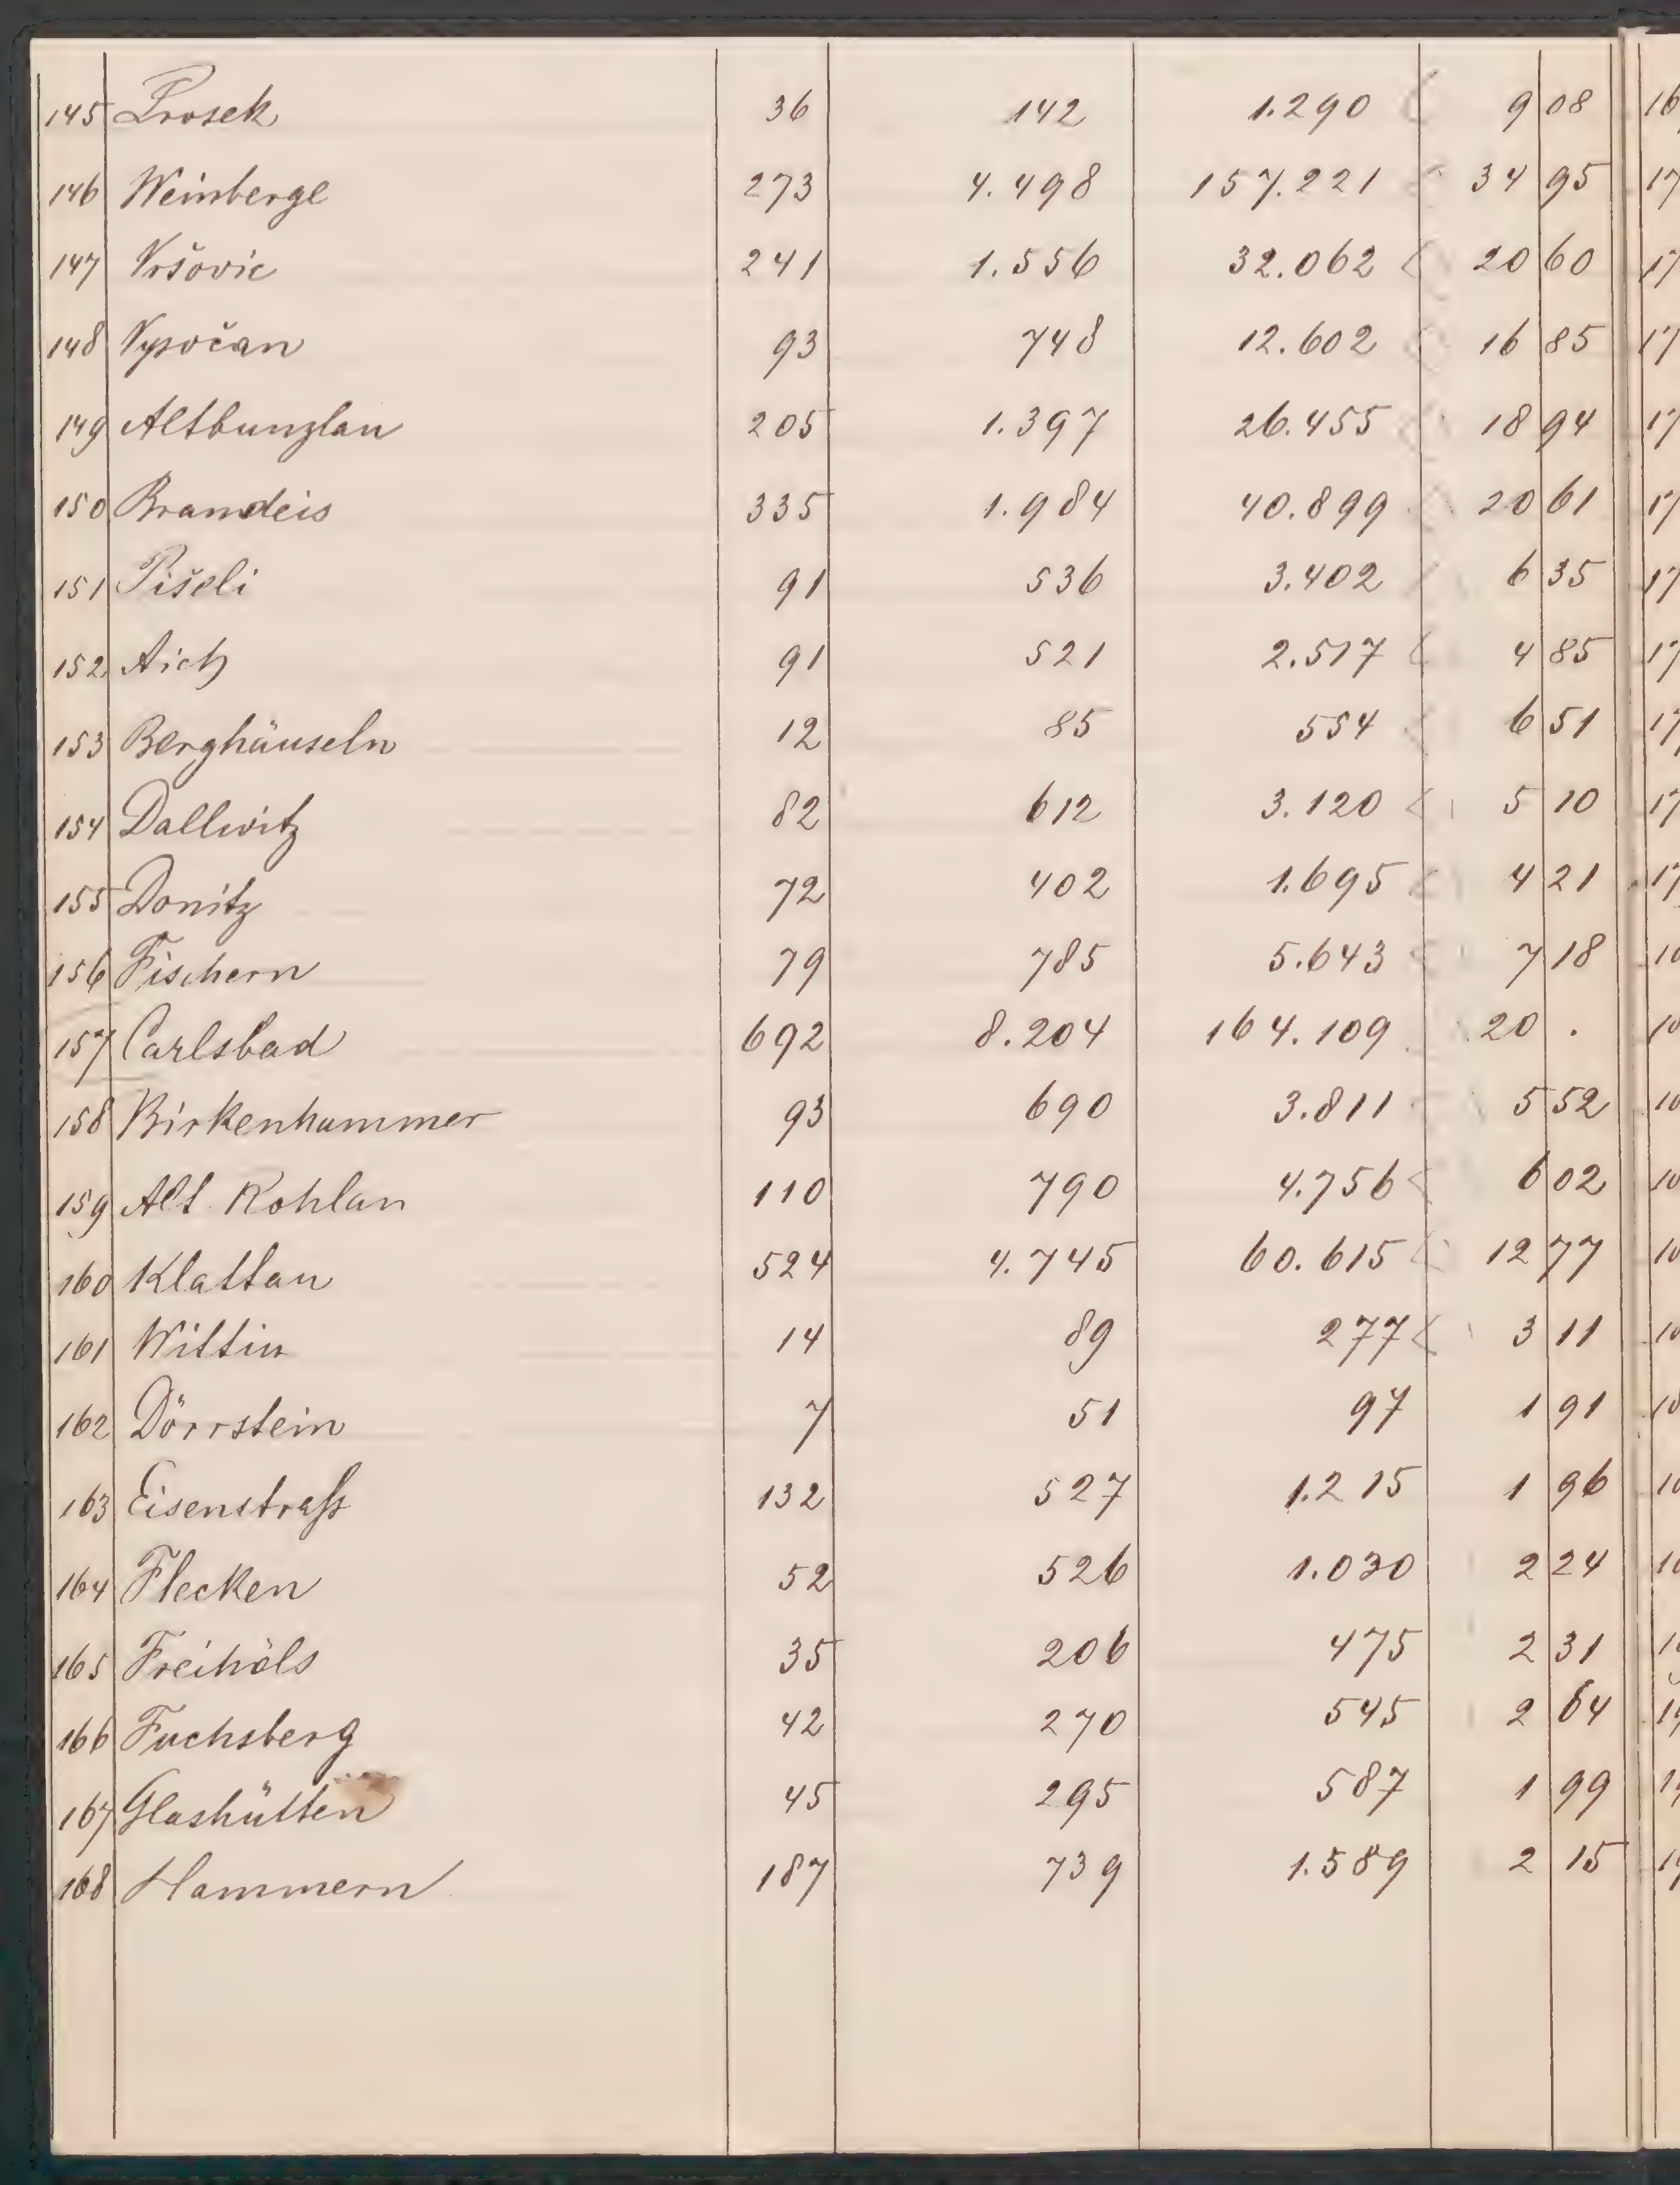 145 Prosek 36 142 1.290 9 08
146 Weinberge 273 4.498 157.221 34 95
147 Vršovic 241 1.556 32.062 20 60
148 Vysočan 93 748 12.602 16 85
149 Altbunzlau 205 1.397 26.455 18 94
150 Brandeis 335 1.984 40.899 20 61
151 Pišeli 91 536 3.402 6 35
152 Aich 91 521 2.517 4 85
153 Berghäuseln 12 85 554 6 51
154 Dallwitz 82 612 3.120 5 10
155 Donitz 72 402 1.695 4 21
156 Fischern 79 785 5.643 7 18
157 Carlsbad 692 8.204 164.109 20 .
158 Birkenhammer 93 690 3.811 5 52
159 Alt Rohlau 110 790 4.756 6 02
160 Klattau 524 4.745 60.615 12 77
161 Wittin 14 89 277 3 11
162 Dörrstein 7 51 97 1 91
163 Eisenstraß 132 527 1.215 1 96
164 Flecken 52 526 1.030 2 24
165 Freihöls 35 206 475 2 31
166 Fuchsberg 42 270 545 2 64
167 Glashütten 45 295 587 1 99
168 Hammern 187 739 1.589 2 15